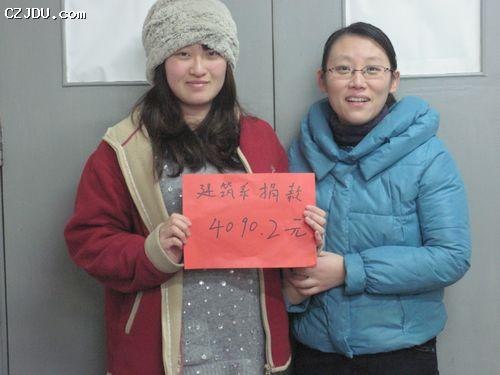 CZJDU.COM
建筑系捐款
4090.2元